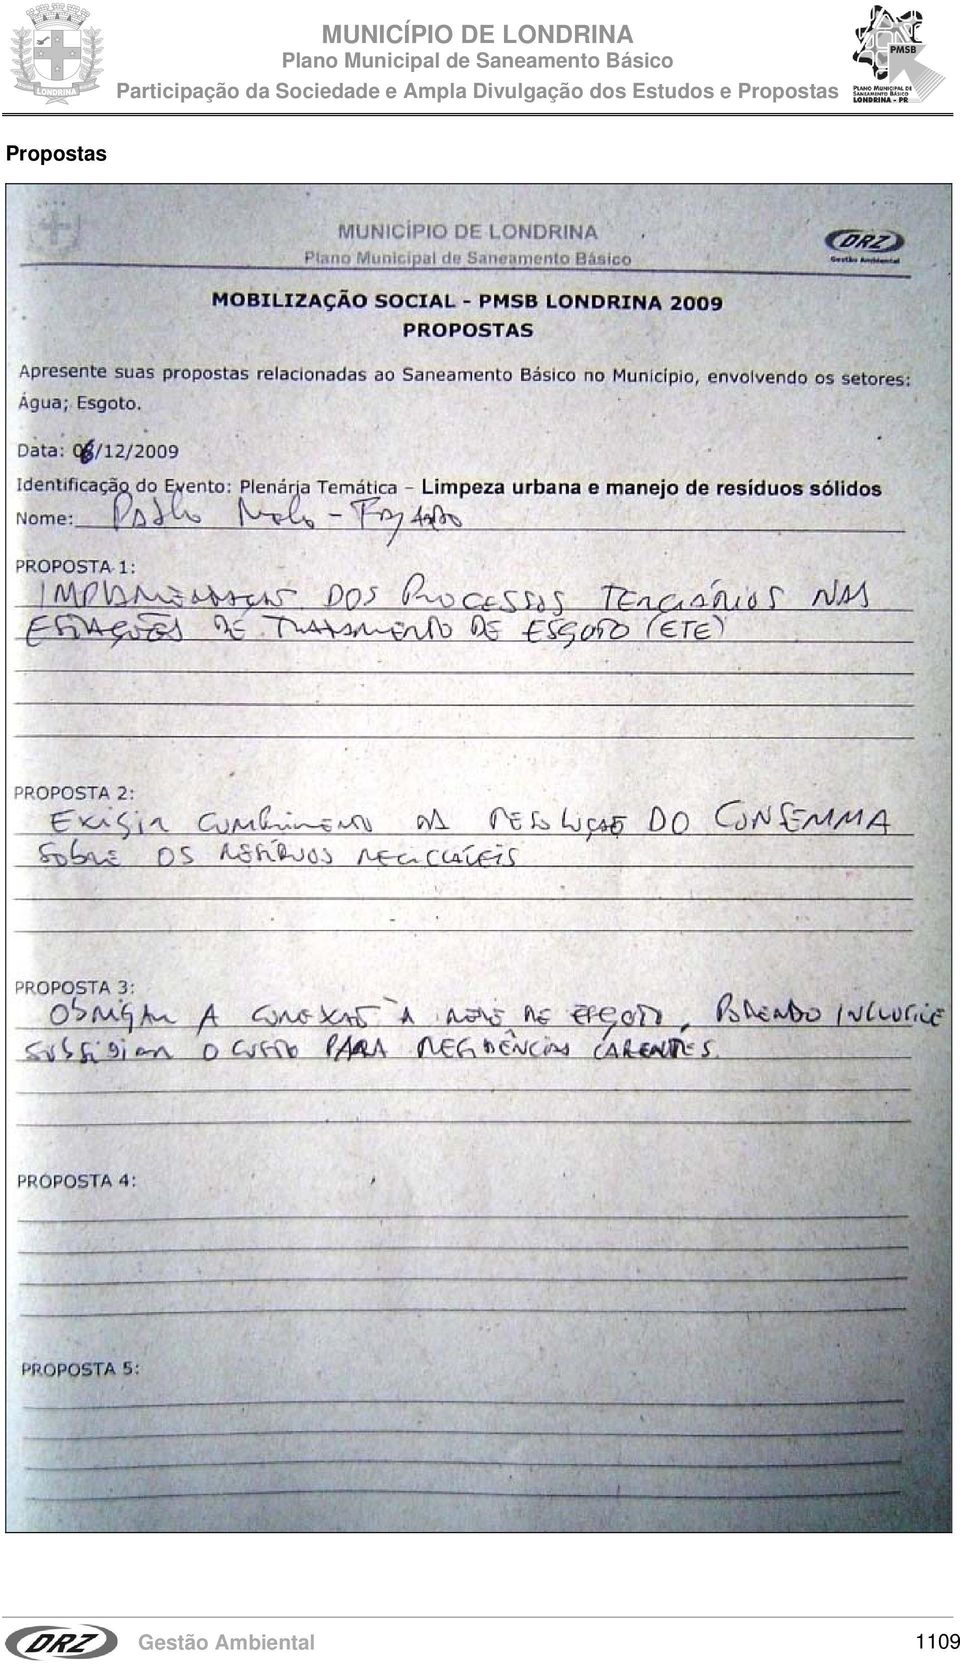 MUNICÍPIO DE LONDRINA
Plano Municipal de Saneamento Básico
Participação da Sociedade e Ampla Divulgação dos Estudos e Propostas
LONDRINA
PMSB
PLANO MUNICIPAL DE
SANEAMENTO BÁSICO
LONDRINA - PR
Propostas
MUNICÍPIO DE LONDRINA
Plano Municipal de Saneamento Básico
DRZ
Gestão Ambiental
MOBILIZAÇÃO SOCIAL - PMSB LONDRINA 2009
PROPOSTAS
Apresente suas propostas relacionadas ao Saneamento Básico no Município, envolvendo os setores:
Água; Esgoto.
Data: 08/12/2009
Identificação do Evento: Plenária Temática – Limpeza urbana e manejo de resíduos sólidos
Nome:
PROPOSTA 1:
IMPLAMENTAÇÃO DOS PROCESSOS TERCIÁRIOS NAS
ESTAÇÕES DE TRATAMENTO DE ESGOTO (ETE)
PROPOSTA 2:
EXIGIR CUMPRIMENTO DA RESOLUÇÃO DO CONSEMMA
SOBRE OS RESÍDUOS RECICLÁVEIS
PROPOSTA 3:
OBRIGAR A CONEXÃO À REDE DE ESGOTO, PODENDO INCLUSIVE
SUBSIDIAR O CUSTO PARA RESIDÊNCIAS CARENTES.
PROPOSTA 4:
PROPOSTA 5:
DRZ Gestão Ambiental
1109